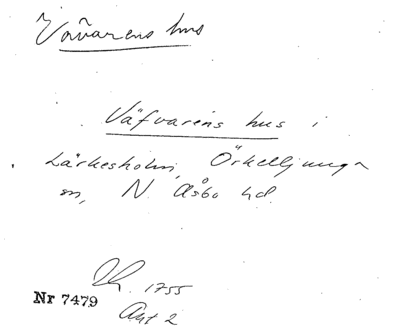 Vävarens hus
Väfvarens hus i
Lärkesholm, Örkelljunga
sn, N. Åsbo hd.
Jh. 1755
Nr 7479
Avt 2